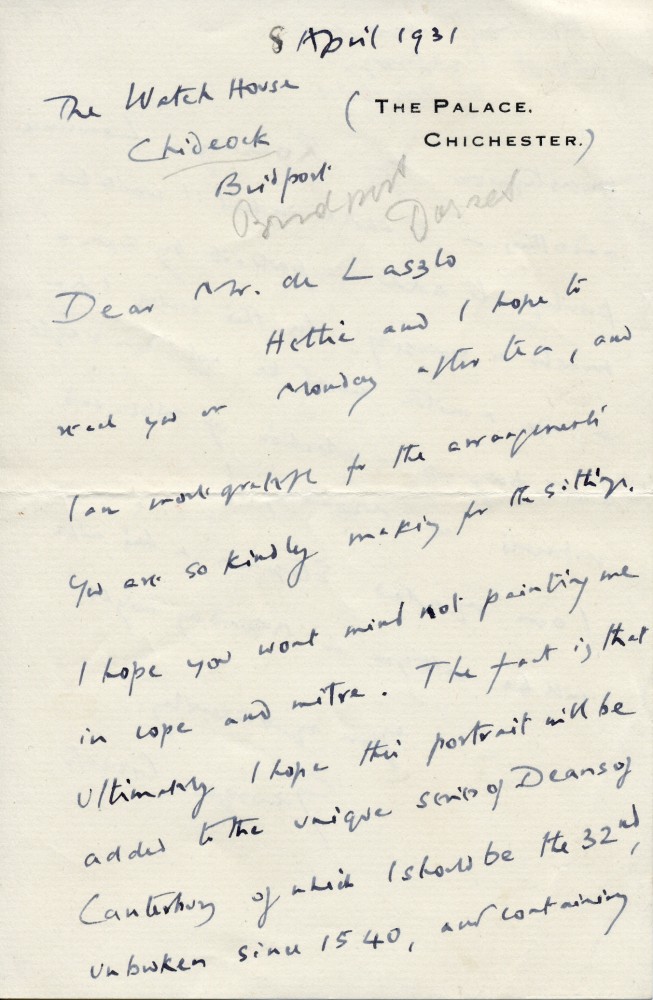 8 April 1931
The Watch House
Chideock
Bridport
(THE PALACE.
CHICHESTER.)
Bridport
Dorset
Dear Mr. de Laszlo
Hettie and I hope to
reach you on Monday after tea, and
I am most grateful for the arrangements
you are so kindly making for the sittings.
I hope you wont mind not painting me
in cope and mitre. The fact is that
ultimately I hope this portrait will be
added to the unique series of Deans of
Canterbury of which I should be the 32nd,
unbroken since 1540, and containing